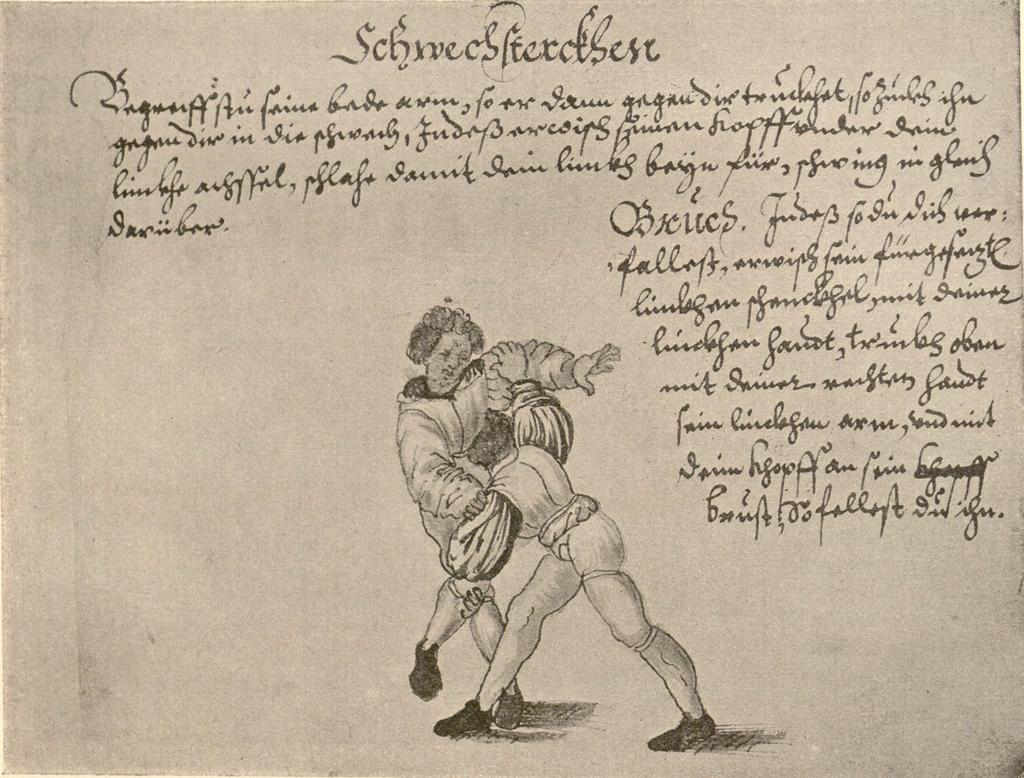 Schwechsterckhen
Begreiffstu seine bede arm, so er dann gegen dir truckhet, so zuckh ihn
gegen dir in die schwech, Indeß erwisch seinen kopff under dein
linckhe achssel, schlahe damit dein linckh beyn für, schwing in gleich
darüber.
Bruch. Indeß so du dich ver=
fallest, erwisch sein fürgesenztl
linckhen schenckhel, mit deiner
linckhen handt, truckh oben
mit deiner rechten handt
sein linckhen arm, und mit
deim khopff an sein khopff
brust, So fellest du ihn.